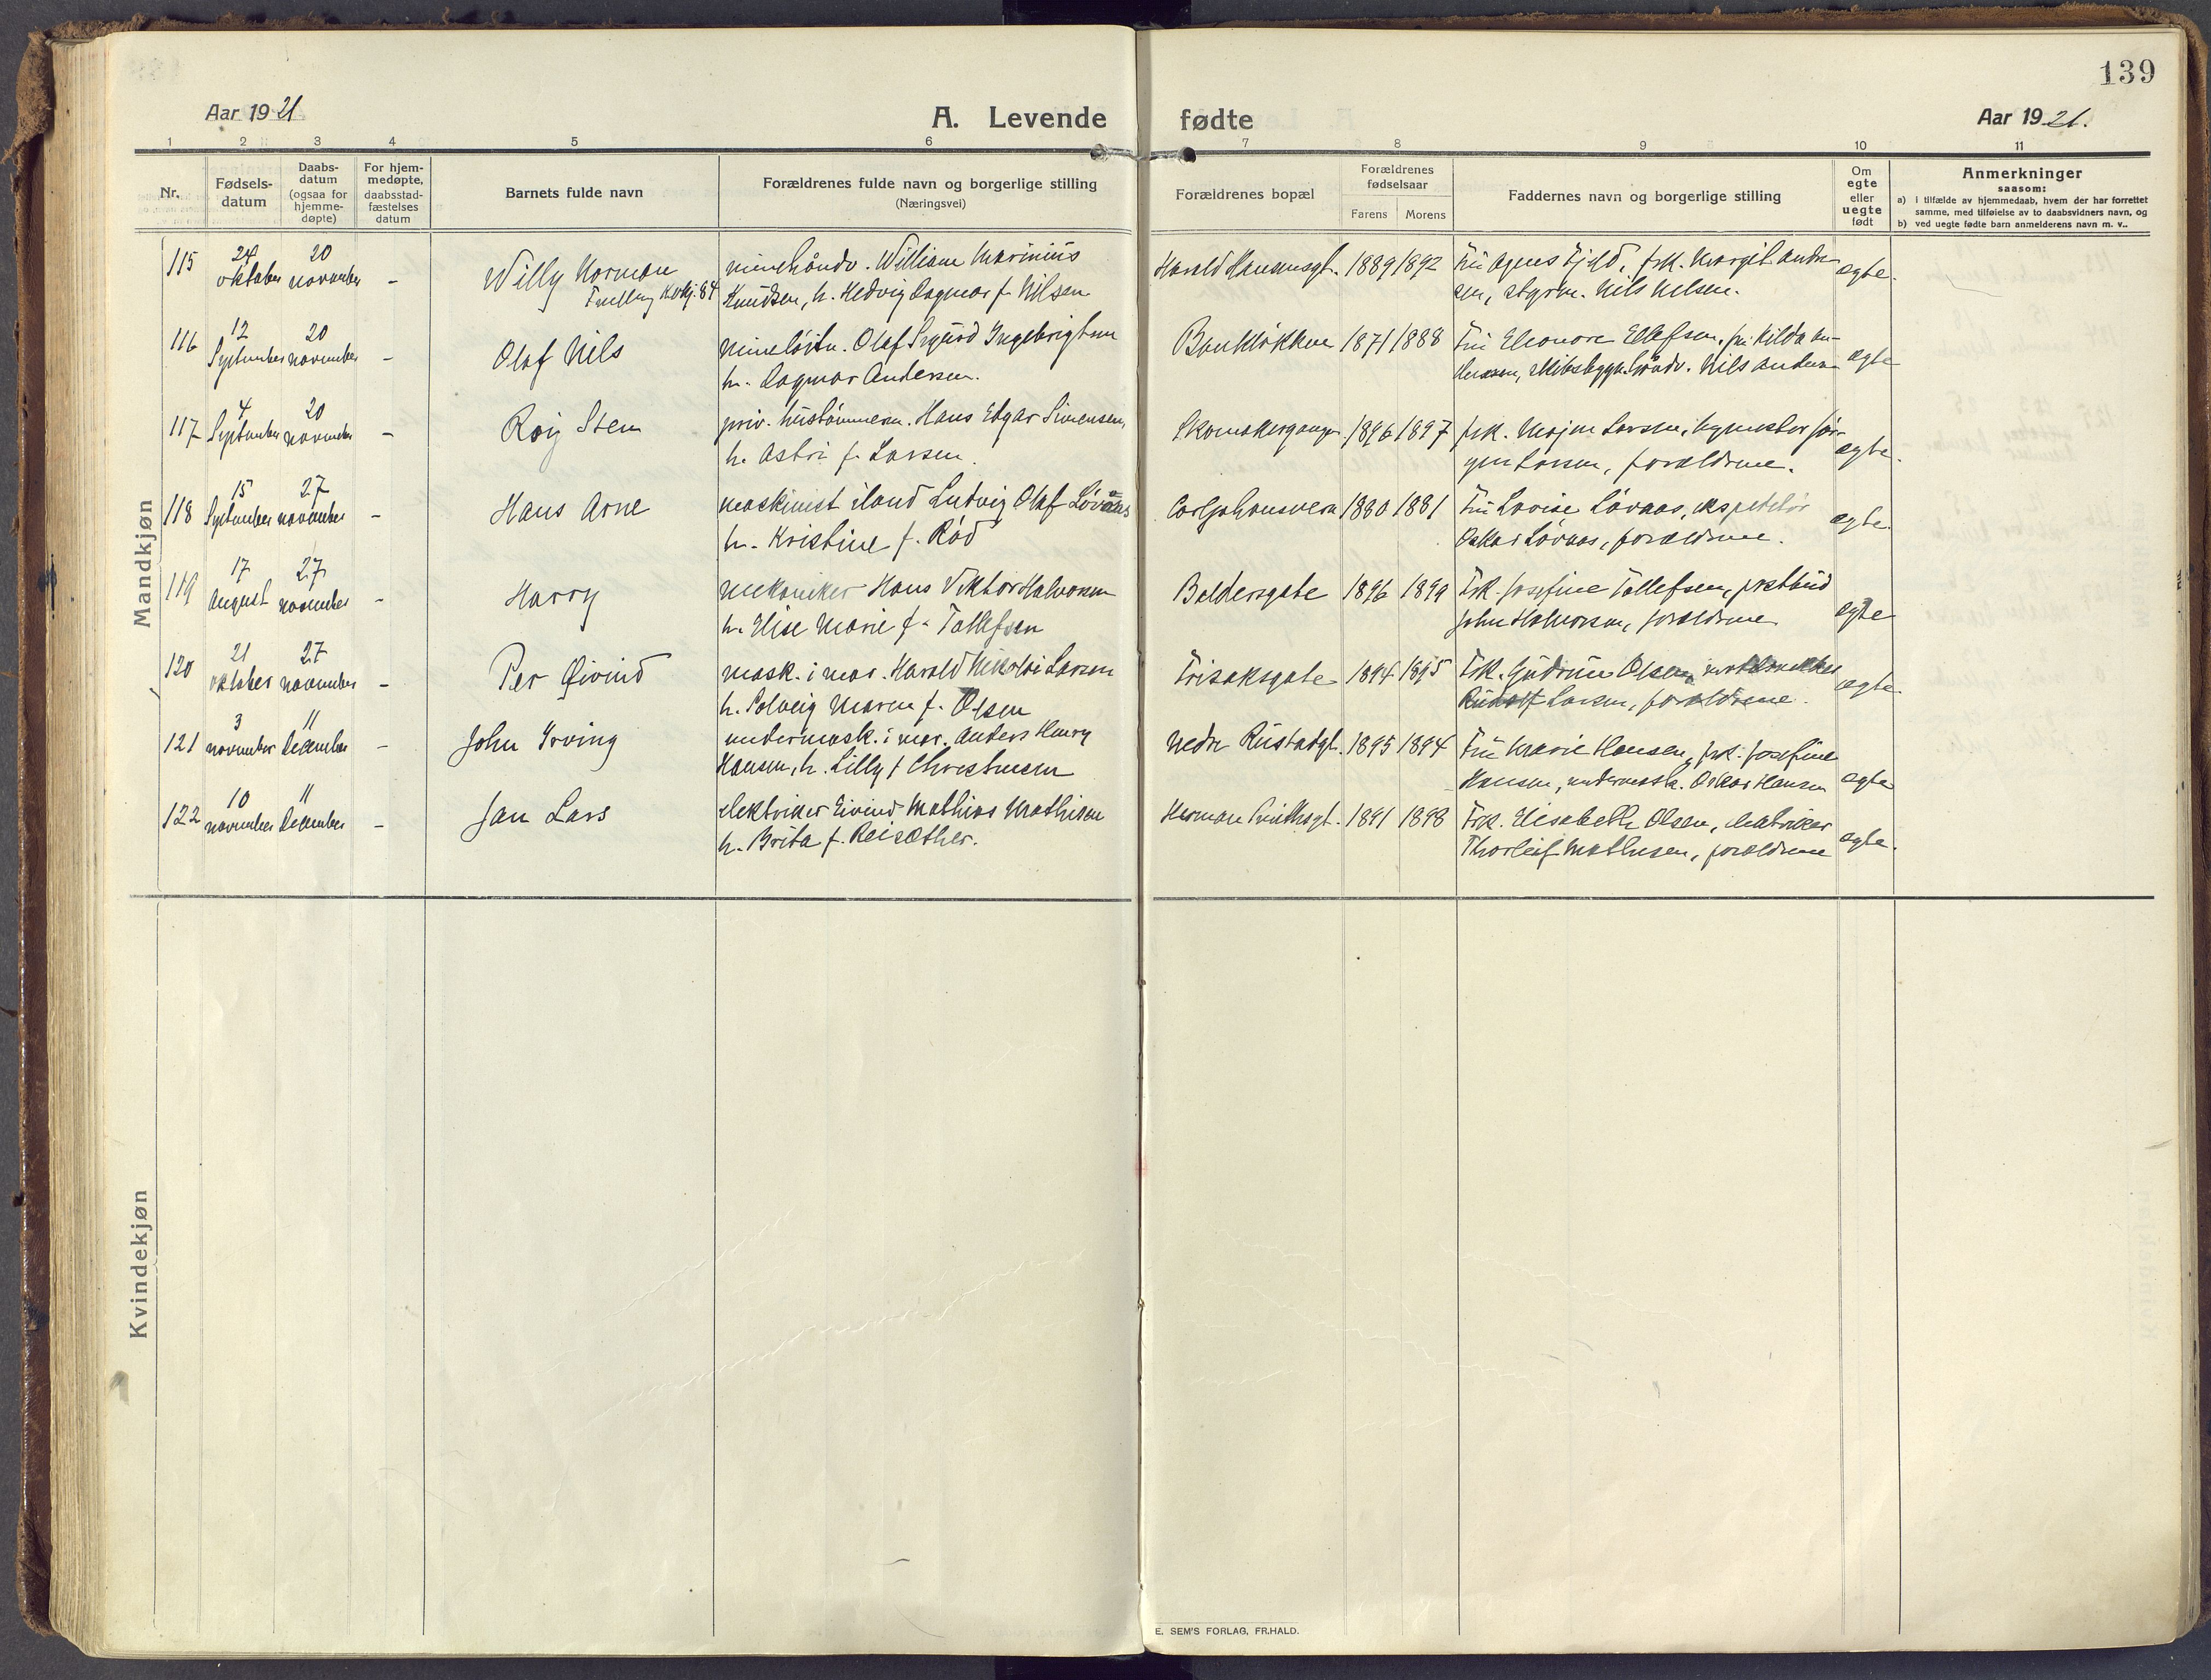 139
Aar 1921
A. Levende fødte
Aar 1921.
1 2 3 4 5 6 7 8 9 10 11
Nr.
Fødsels-
datum
Daabs-
datum
(ogsaa for
hjemme-
døpte)
For hjem-
medøpte,
daabsstad-
fæstelses
datum
Barnets fulde navn
Forældrenes fulde navn og borgerlige stilling
(Næringsvei)
Forældrenes bopæl
Forældrenes
fødselsaar
Farens Morens
Faddernes navn og borgerlige stilling
Om
egte
eller
uegte
født
Anmerkninger
saasom:
a) i tilfælde av hjemmedaab, hvem der har forrettet
samme, med tilføielse av to daabsvidners navn, og
b) ved uegte fødte barn anmelderens navn m. v..
Mandkjøn
115 24 oktober 20 november - Willy Norman
minehåndv. William Marinius
Knudsen, h. Hedvig Dagmar f. Nilsen
Harald Haraldsensgt. 1889 1892
Fru Agnes Fjeld, frk. Margit Andre-
sen, styrm. Nils Nilsen.
egte.
116 12 September 20 november - Olaf Nils
mineløitn. Olaf Sigurd Ingebrigtsen
h. Dagmar Andersen.
Bankløkken 1871 1888
Fru Eleonore Ellefsen, fru Hilda An-
dersen, skibsbygg.håndv. Nils Andersen
egte
117 4 September 20 november - Roy Sten
priv. hustømmerm. Hans Edgar Simensen,
h. Astri f. Larsen.
Skomakergangen 1896 1897
frk. Larsen, Jør-
gen Larsen, forældrene.
egte.
118 15 September 27 november - Hans Arne
maskinist iland Ludvig Olaf Løvaas
h. Kristine f. Rød
Carljohansvern 1880 1881
Fru Lovise Løvaas, ekspeditør
Oskar Løvaas, forældrene.
egte.
119 17 August 27 november - Harry
mekaniker Hans Viktor Halvorsen
h. Elise Marie f. Tollefsen
Baldersgate 1896 1899
Frk. Josefine Tollefsen, postbud
John Halvorsen, forældrene
egte
120 21 oktober 27 november - Per Øivind
mask. i mar. Harald Nikolai Larsen
h. Solveig Maren f. Olsen
Frisaksgate 1894 1895
Frk. Gudrun Olsen,
Rudolf Larsen, forældrene.
egte
121 3 november 11 December - John Irving
undermask. i mar. Anders Henry
Hansen, h. Lilly f. Christensen
Nedre Rustadgt. 1895 1894
Fru Marie Hansen, frk. Josefine
Hansen, undermask. Oskar Hansen
egte
122 10 november 11 December - Jan Lars
elektriker Eivind Mathias Mathisen
h. Brita f. Reisæther.
Herman 1891 1898
Frk. Elisabeth Olsen, elektriker
Thorleif Mathisen, forældrene
egte.
Kvindekjøn
E. SEM'S FORLAG, FR.HALD.